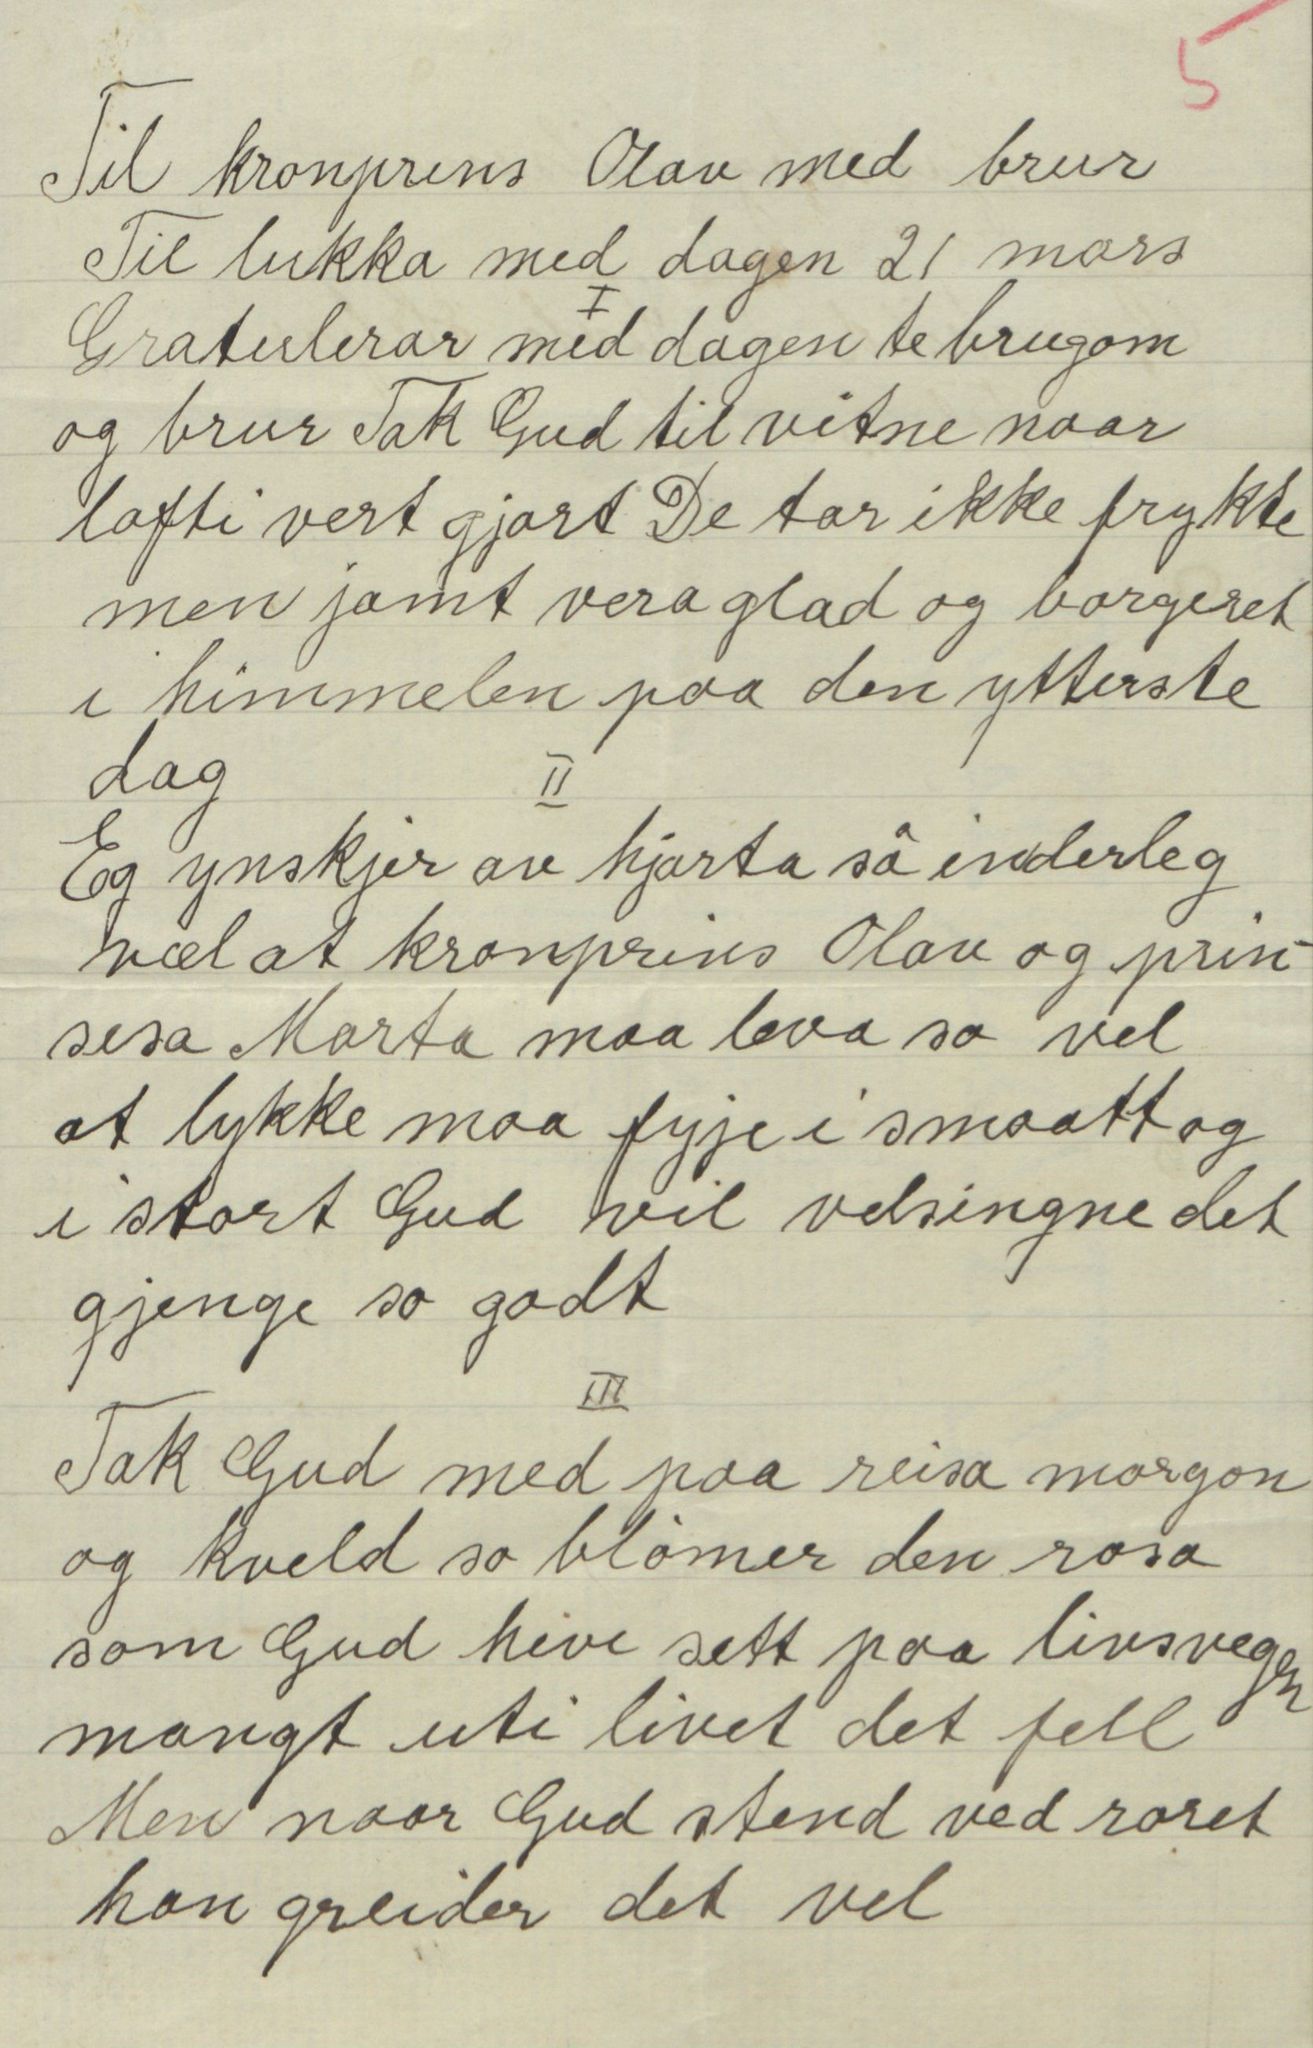 5
Til kronprins Olav med brur
Til lukka med dagen 21 mars
I
Gratulerar med dagen te brugom
og brur Tak Gud til vitne naar
lofti vert gjort De tor ikke frykte
men jamt vera glad og borgeret
i himmelen paa den ytterste
dag
II
Eg ynskjer av hjarta så inderleg
væl at kronprins Olav og prin-
sesa Marta maa leva so vel
at lykke maa fyje i smaatt og
i stort Gud vil velsingne det
gjenge so godt
III
Tak Gud med paa reisa morgon
og kveld so blömer den rosa
som Gud heve sett paa livsvegen
mangt uti livet det fell
Men naar Gud stend ved roret
han greider det vel